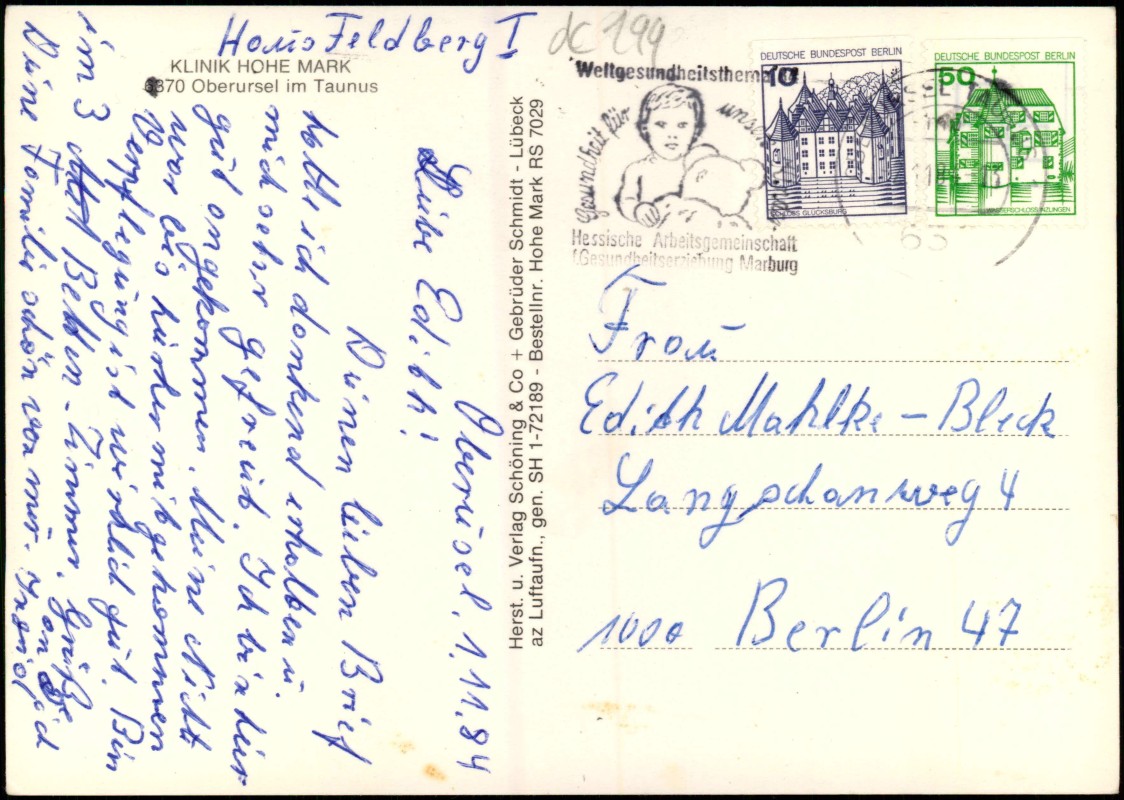 Haus Feldberg I
dC 199
KLINIK HOHE MARK
6370 Oberursel im Taunus
Oberursel, 1.11.84
Liebe Edith!
Deinen lieben Brief
habe ich dankend erhalten u.
mich sehr gefreut. Ich bin hier
gut angekommen. Meine Nicht
war bis hierher mitgekommen
Verpflegung ist wirklich gut. Bin
im 3 Betten-Zimmer. Grüße
Deine Familie schön von mir.
Herst. u. Verlag Schöning & Co + Gebrüder Schmidt - Lübeck
az Luftaufn., gen. SH 1-72189 - Bestellnr. Hohe Mark RS 7029
Weltgesundheitsthema
Gesundheit für unsere
Hessische Arbeitsgemeinschaft
f.Gesundheitserziehung Marburg
DEUTSCHE BUNDESPOST BERLIN
10
SCHLOSS GLÜCKSBURG
DEUTSCHE BUNDESPOST BERLIN
50
WASSERSCHLOSS INZLINGEN
Frau
Edith Mahlke-Bleck
Langschanweg 4
1000 Berlin 47